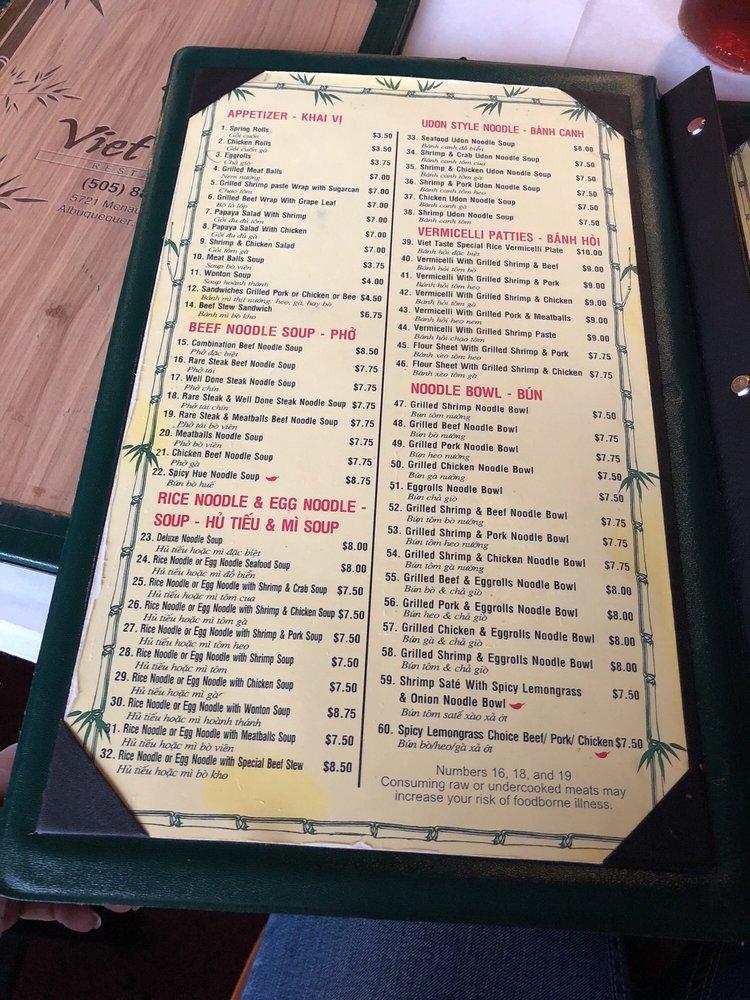 Viet
REST
(505) 8
5721 Menau
Albuquerque
APPETIZER - KHAI VỊ
1. Spring Rolls $3.50
Gỏi cuốn
2. Chicken Rolls $3.50
Gỏi cuốn gà
3. Eggrolls $3.75
Chả giò
4. Grilled Meat Balls $7.00
Nem nướng
5. Grilled Shrimp paste Wrap with Sugarcan $7.00
Chạo tôm
6. Grilled Beef Wrap With Grape Leaf $7.00
Bò lá lốp
7. Papaya Salad With Shrimp $7.00
Gỏi đu đủ tôm
8. Papaya Salad With Chicken $7.00
Gỏi đu đủ gà
9. Shrimp & Chicken Salad $7.00
Gỏi tôm gà
10. Meat Balls Soup $3.75
Soup bò viên
11. Wonton Soup $4.00
Soup hoành thánh
12. Sandwiches Grilled Pork or Chicken or Bee $4.50
Bánh mì thịt nướng: heo, gà, hay bò
14. Beef Stew Sandwich $6.75
Bánh mì bò kho
BEEF NOODLE SOUP - PHỞ
15. Combination Beef Noodle Soup $8.50
Phở đặc biệt
16. Rare Steak Beef Noodle Soup $7.75
Phở tái
17. Well Done Steak Noodle Soup $7.75
Phở chín
18. Rare Steak & Well Done Steak Noodle Soup $7.75
Phở tái chín
19. Rare Steak & Meatballs Beef Noodle Soup $7.75
Phở tái bò viên
20. Meatballs Noodle Soup $7.75
Phở bò viên
21. Chicken Beef Noodle Soup $7.75
Phở gà
22. Spicy Hue Noodle Soup $8.75
Bún bò huế
RICE NOODLE & EGG NOODLE -
SOUP - HỦ TIẾU & MÌ SOUP
23. Deluxe Noodle Soup $8.00
Hủ tiếu hoặc mì đặc biệt
24. Rice Noodle or Egg Noodle Seafood Soup $8.00
Hủ tiếu hoặc mì đồ biển
25. Rice Noodle or Egg Noodle with Shrimp & Crab Soup $7.50
Hủ tiếu hoặc mì tôm cua
26. Rice Noodle or Egg Noodle with Shrimp & Chicken Soup $7.50
Hủ tiếu hoặc mì tôm gà
27. Rice Noodle or Egg Noodle with Shrimp & Pork Soup $7.50
Hủ tiếu hoặc mì tôm heo
28. Rice Noodle or Egg Noodle with Shrimp Soup $7.50
Hủ tiếu hoặc mì tôm
29. Rice Noodle or Egg Noodle with Chicken Soup $7.50
Hủ tiếu hoặc mì gà
30. Rice Noodle or Egg Noodle with Wonton Soup $8.75
Hủ tiếu hoặc mì hoành thánh
31. Rice Noodle or Egg Noodle with Meatballs Soup $7.50
Hủ tiếu hoặc mì bò viên
32. Rice Noodle or Egg Noodle with Special Beef Stew $8.50
Hủ tiếu hoặc mì bò kho
UDON STYLE NOODLE - BÁNH CANH
33. Seafood Udon Noodle Soup $8.00
Bánh canh đồ biển
34. Shrimp & Crab Udon Noodle Soup $7.50
Bánh canh tôm cua
35. Shrimp & Chicken Udon Noodle Soup $7.50
Bánh canh tôm gà
36. Shrimp & Pork Udon Noodle Soup $7.50
Bánh canh tôm heo
37. Chicken Udon Noodle Soup $7.50
Bánh canh gà
38. Shrimp Udon Noodle Soup $7.50
Bánh canh tôm
VERMICELLI PATTIES - BÁNH HỎI
39. Viet Taste Special Rice Vermicelli Plate $10.00
Bánh hỏi đặc biệt
40. Vermicelli With Grilled Shrimp & Beef $9.00
Bánh hỏi tôm bò
41. Vermicelli With Grilled Shrimp & Pork $9.00
Bánh hỏi tôm heo
42. Vermicelli With Grilled Shrimp & Chicken $9.00
Bánh hỏi tôm gà
43. Vermicelli With Grilled Pork & Meatballs $9.00
Bánh hỏi heo nem
44. Vermicelli With Grilled Shrimp Paste $9.00
Bánh hỏi chạo tôm
45. Flour Sheet With Grilled Shrimp & Pork $7.75
Bánh xèo tôm heo
46. Flour Sheet With Grilled Shrimp & Chicken $7.75
Bánh xèo tôm gà
NOODLE BOWL - BÚN
47. Grilled Shrimp Noodle Bowl $7.50
Bún tôm nướng
48. Grilled Beef Noodle Bowl $7.75
Bún bò nướng
49. Grilled Pork Noodle Bowl $7.75
Bún heo nướng
50. Grilled Chicken Noodle Bowl $7.50
Bún gà nướng
51. Eggrolls Noodle Bowl $7.50
Bún chả giò
52. Grilled Shrimp & Beef Noodle Bowl $7.75
Bún tôm bò nướng
53. Grilled Shrimp & Pork Noodle Bowl $7.75
Bún tôm heo nướng
54. Grilled Shrimp & Chicken Noodle Bowl $7.75
Bún tôm gà nướng
55. Grilled Beef & Eggrolls Noodle Bowl $8.00
Bún bò & chả giò
56. Grilled Pork & Eggrolls Noodle Bowl $8.00
Bún heo & chả giò
57. Grilled Chicken & Eggrolls Noodle Bowl $8.00
Bún gà & chả giò
58. Grilled Shrimp & Eggrolls Noodle Bowl $8.00
Bún tôm & chả giò
59. Shrimp Saté With Spicy Lemongrass $7.50
& Onion Noodle Bowl
Bún tôm saté xào xả ớt
60. Spicy Lemongrass Choice Beef/ Pork/ Chicken $7.50
Bún bò/heo/gà xả ớt
Numbers 16, 18, and 19
Consuming raw or undercooked meats may
increase your risk of foodborne illness.